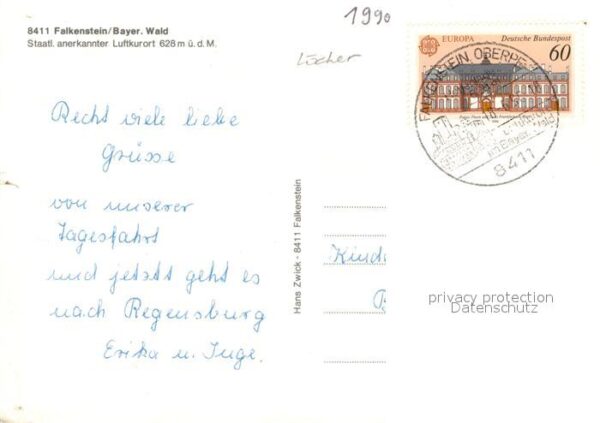 8411 Falkenstein/Bayer. Wald
Staatl. anerkannter Luftkurort 628 m ü. d. M.
1990
Löcher
EUROPA Deutsche Bundespost
60
FALKENSTEIN, OBERPF
8411
Recht viele liebe
Grüsse
von unserer
Tagesfahrt
und jetzt geht es
nach Regensburg
Erika u. Inge.
Hans Zwick · 8411 Falkenstein
Kind
privacy protection
Datenschutz